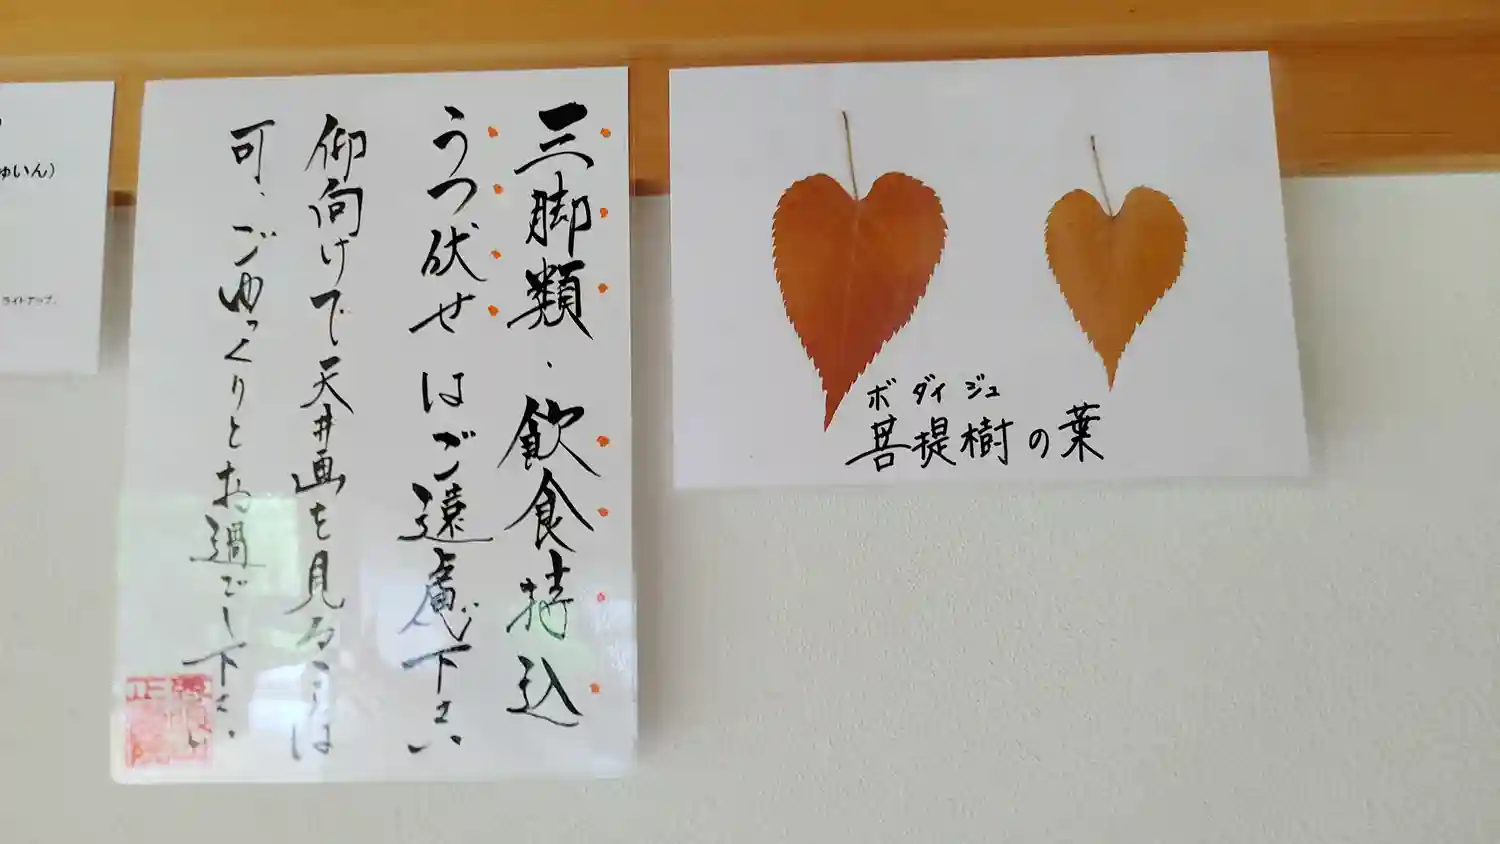 ゅいん）
ライトアップ。
三脚類・飲食持込
うつ伏せはご遠慮下さい
仰向けで天井画を見ることは
可、ごゆっくりとお過ごし下さい
ボダイジュ
菩提樹の葉